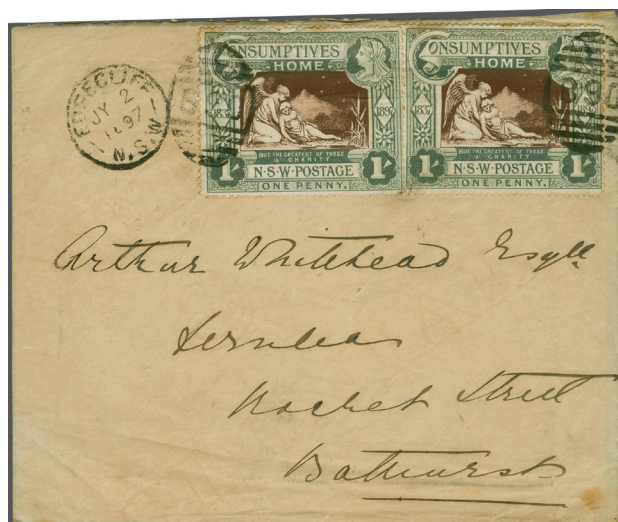 EDGECLIFF
JY 2
1897
N.S.W
CONSUMPTIVES
HOME
1837 1897
BUT THE GREATEST OF THESE
IS CHARITY
1/- N·S·W·POSTAGE 1/-
ONE PENNY.
CONSUMPTIVES
HOME
1837 1897
BUT THE GREATEST OF THESE
IS CHARITY
1/- N·S·W·POSTAGE 1/-
ONE PENNY.
Arthur Whitehead Esq
Rocket Street
Bathurst